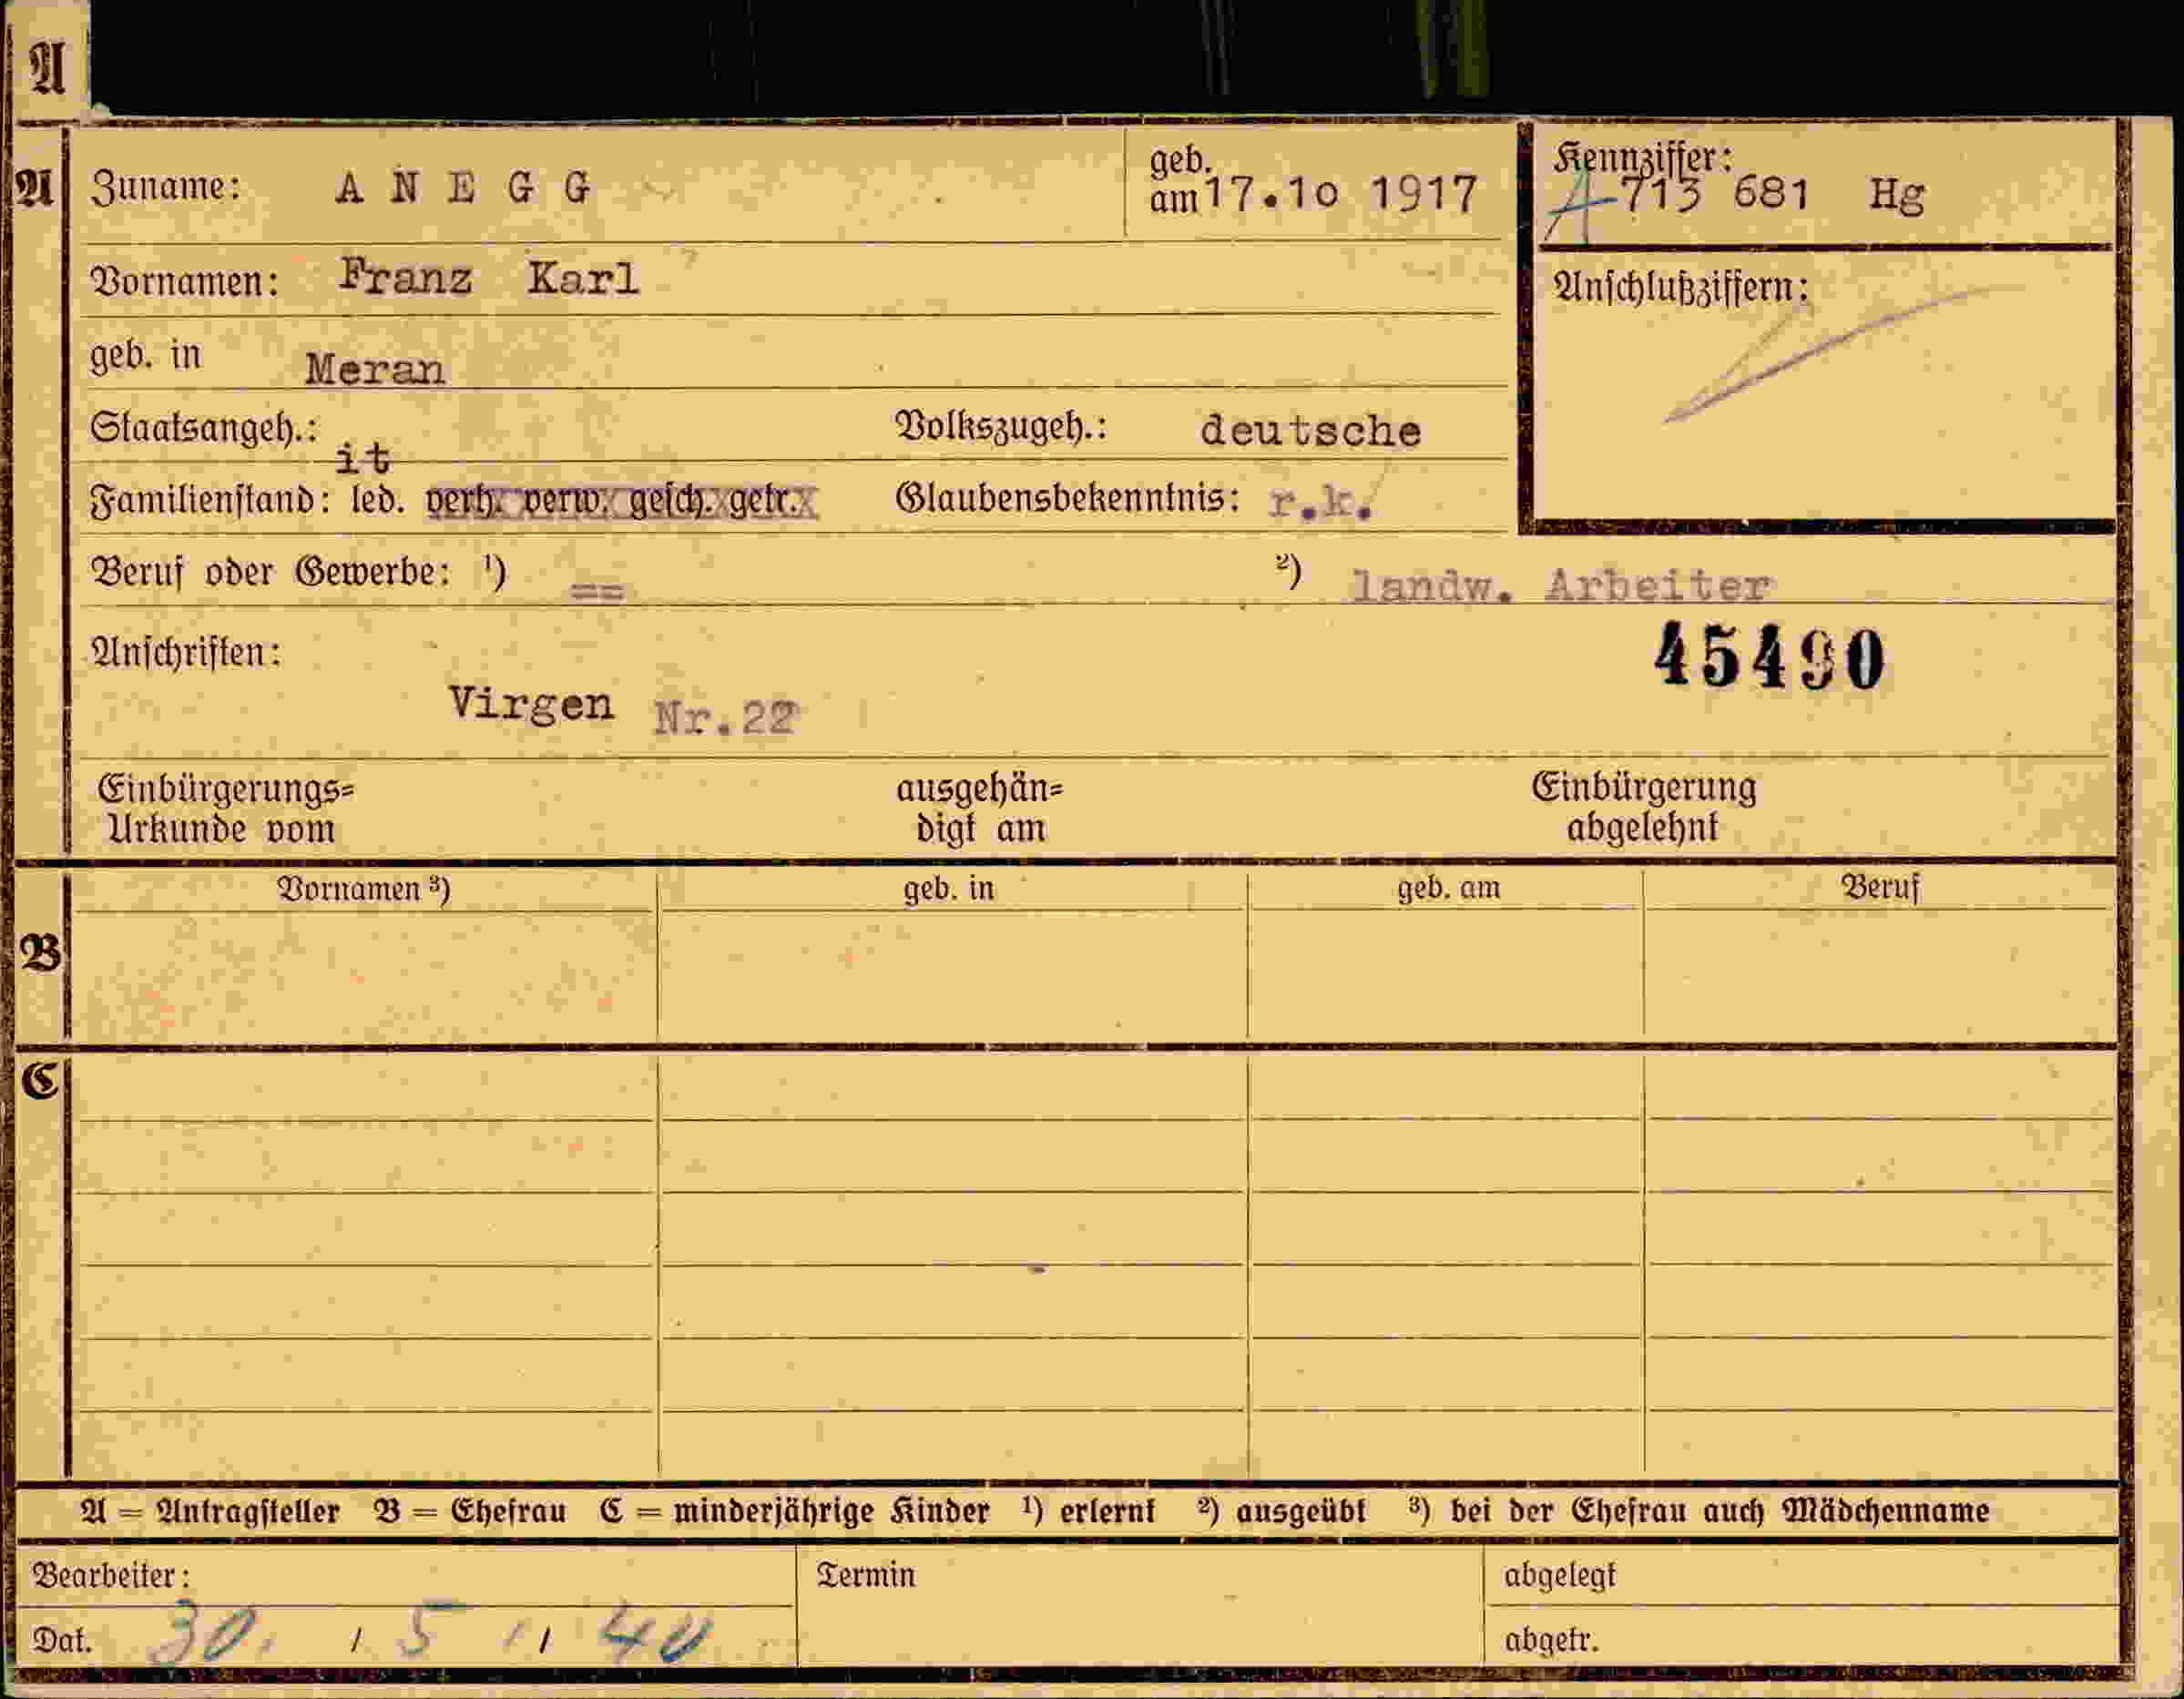 A
A Zuname: A N E G G geb. am 17.10 1917 Kennziffer: A 713 681 Hg
Vornamen: Franz Karl Anschlußziffern:
geb. in Meran
Staatsangeh.: it Volkszugeh.: deutsche
Familienstand: led. verh. verw. gesch. getr. Glaubensbekenntnis: r.k.
Beruf oder Gewerbe: ¹) == ²) landw. Arbeiter
Anschriften: 45490
Virgen Nr.22
Einbürgerungs= ausgehän= Einbürgerung
Urkunde vom digt am abgelehnt
B Vornamen ³) geb. in geb. am Beruf
C
A = Antragsteller B = Ehefrau C = minderjährige Kinder ¹) erlernt ²) ausgeübt ³) bei der Ehefrau auch Mädchenname
Bearbeiter: Termin abgelegt
Dat. 30. / 5 / 40 abgetr.